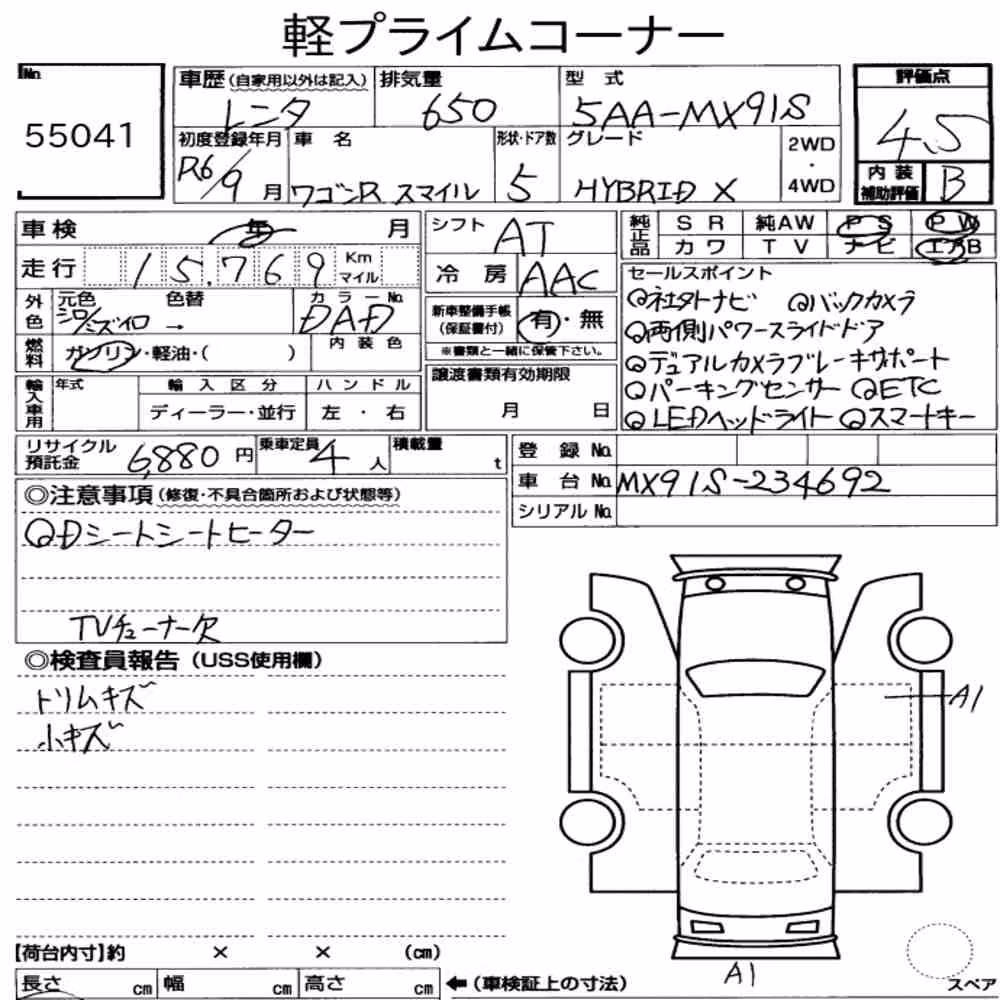 軽プライムコーナー
No.
55041
車歴(自家用以外は記入)
レンタ
排気量
650
型 式
5AA-MX91S
評価点
4.5
初度登録年月
R6/9月
車 名
ワゴンR スマイル
形状・ドア数
5
グレード
HYBRID X
2WD
・
4WD
内装
補助評価
B
車検 年 月
シフト
AT
純正品
SR 純AW PS PW
カワ TV ナビ エアB
走行 15,769 Km
マイル
冷房
AAC
セールスポイント
外色
元色 色替
シロ/ミズイロ →
カラーNo.
DAD
新車整備手帳
(保証書付)
有・無
※書類と一緒に保管下さい。
燃料
ガソリン・軽油・( )
内装色
◎社外ナビ ◎バックカメラ
◎両側パワースライドドア
◎デュアルカメラブレーキサポート
◎パーキングセンサー ◎ETC
◎LEDヘッドライト ◎スマートキー
輸入車用
年式
輸入区分
ハンドル
ディーラー・並行
左・右
譲渡書類有効期限
月 日
リサイクル
預託金
6,880円
乗車定員
4人
積載量
t
登録No.
車台No. MX91S-234692
シリアルNo.
◎注意事項(修復・不具合箇所および状態等)
◎Dシートシートヒーター
TVチューナー欠
◎検査員報告(USS使用欄)
トリムキズ
小キズ
A1
A1
【荷台内寸】約 × × (cm)
長さ cm 幅 cm 高さ cm
←(車検証上の寸法)
スペア